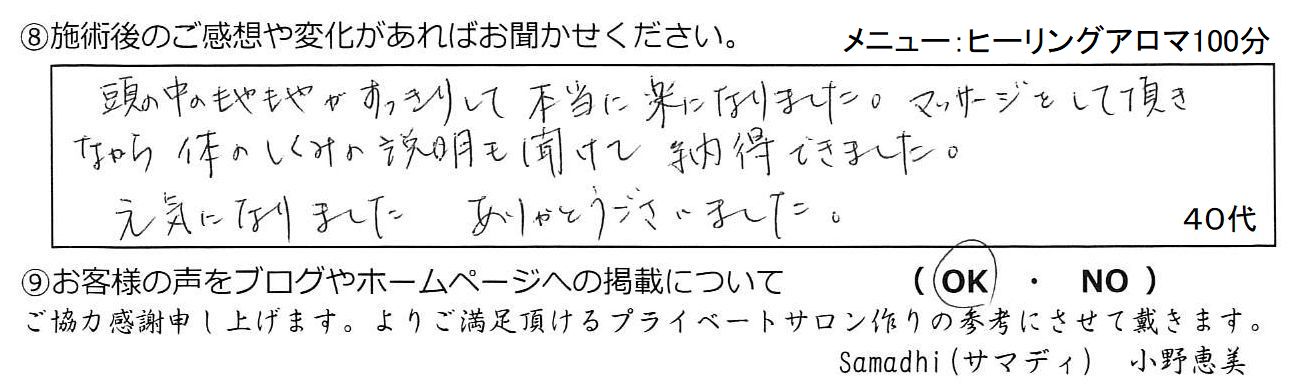 ⑧施術後のご感想や変化があればお聞かせください。 メニュー：ヒーリングアロマ100分
頭の中のもやもやがすっきりして 本当に楽になりました。マッサージをして頂き
ながら 体のしくみの説明も聞けて 納得できました。
元気になりました ありがとうございました。 40代
⑨お客様の声をブログやホームページへの掲載について （ OK ・ NO ）
ご協力感謝申し上げます。よりご満足頂けるプライベートサロン作りの参考にさせて戴きます。
Samadhi(サマディ) 小野恵美